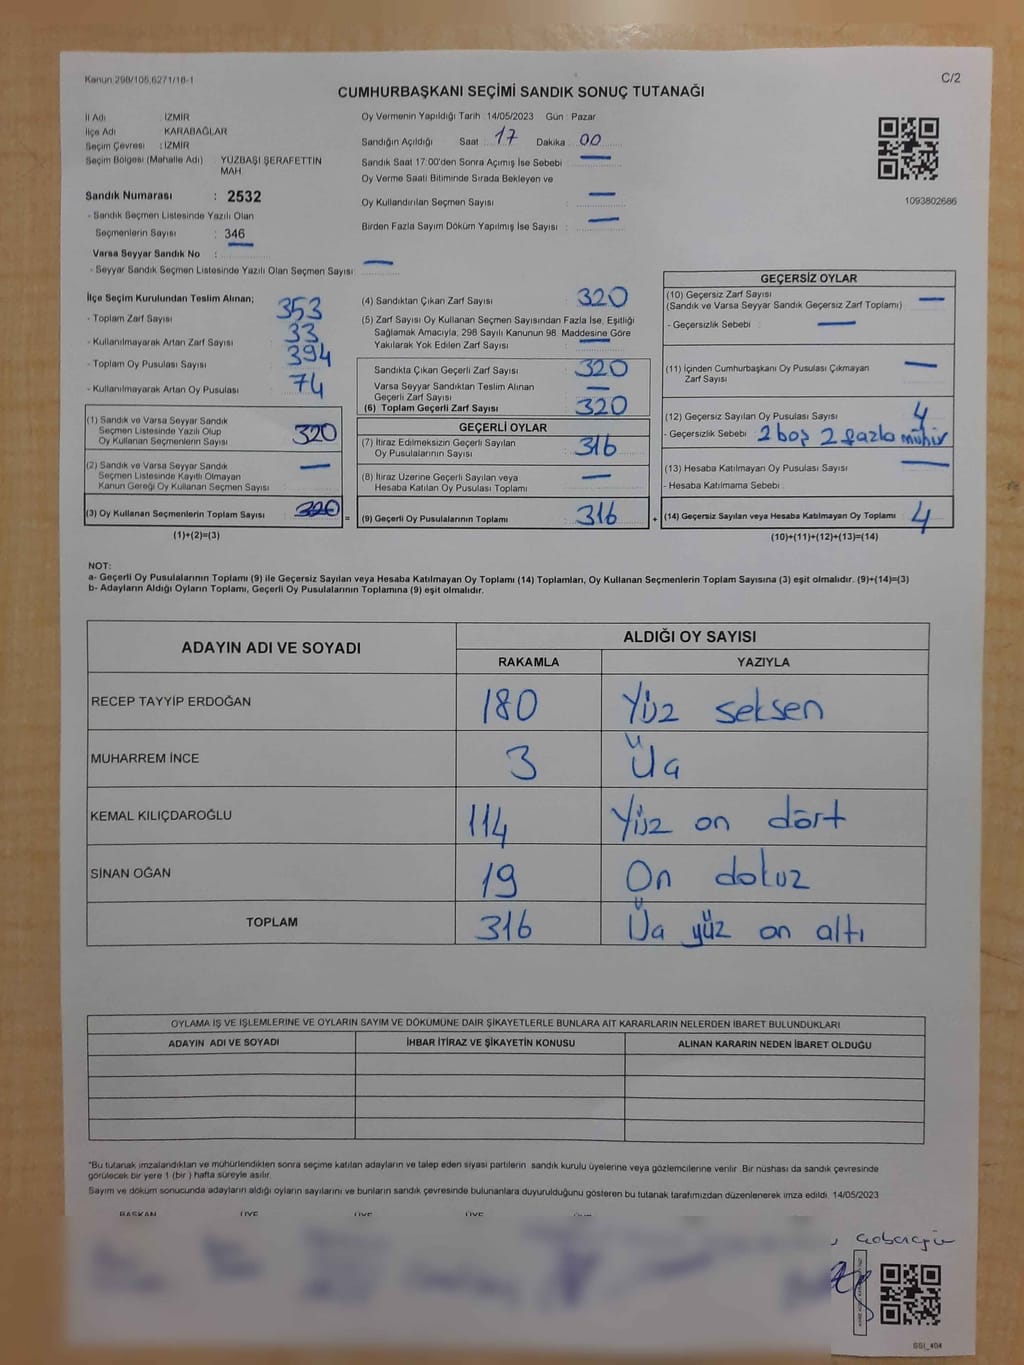 Kanun 298/105,6271/18-1
C/2
CUMHURBAŞKANI SEÇİMİ SANDIK SONUÇ TUTANAĞI
İl Adı : İZMİR
İlçe Adı : KARABAĞLAR
Seçim Çevresi : İZMİR
Seçim Bölgesi (Mahalle Adı) YÜZBAŞI ŞERAFETTİN
MAH
Sandık Numarası : 2532
- Sandık Seçmen Listesinde Yazılı Olan
Seçmenlerin Sayısı : 346
Varsa Seyyar Sandık No :
- Seyyar Sandık Seçmen Listesinde Yazılı Olan Seçmen Sayısı :
Oy Vermenin Yapıldığı Tarih : 14/05/2023 Gün : Pazar
Sandığın Açıldığı Saat : 17 Dakika : 00
Sandık Saat 17:00'den Sonra Açımış İse Sebebi :
Oy Verme Saati Bitiminde Sırada Bekleyen ve
Oy Kullandırılan Seçmen Sayısı :
Birden Fazla Sayım Döküm Yapılmış İse Sayısı :
1093802686
İlçe Seçim Kurulundan Teslim Alınan;
- Toplam Zarf Sayısı : 353
- Kullanılmayarak Artan Zarf Sayısı : 33
- Toplam Oy Pusulası Sayısı : 394
- Kullanılmayarak Artan Oy Pusulası : 74
(1) Sandık ve Varsa Seyyar Sandık
Seçmen Listesinde Yazılı Olup
Oy Kullanan Seçmenlerin Sayısı : 320
(2) Sandık ve Varsa Seyyar Sandık
Seçmen Listesinde Kayıtlı Olmayan
Kanun Gereği Oy Kullanan Seçmen Sayısı :
(3) Oy Kullanan Seçmenlerin Toplam Sayısı : 320 =
(1)+(2)=(3)
(4) Sandıktan Çıkan Zarf Sayısı : 320
(5) Zarf Sayısı Oy Kullanan Seçmen Sayısından Fazla İse, Eşitliği
Sağlamak Amacıyla, 298 Sayılı Kanunun 98. Maddesine Göre
Yakılarak Yok Edilen Zarf Sayısı :
Sandıkta Çıkan Geçerli Zarf Sayısı : 320
Varsa Seyyar Sandıktan Teslim Alınan
Geçerli Zarf Sayısı :
(6) Toplam Geçerli Zarf Sayısı : 320
GEÇERLİ OYLAR
(7) İtiraz Edilmeksizin Geçerli Sayılan
Oy Pusulalarının Sayısı : 316
(8) İtiraz Üzerine Geçerli Sayılan veya
Hesaba Katılan Oy Pusulası Toplamı :
(9) Geçerli Oy Pusulalarının Toplamı : 316 +
GEÇERSİZ OYLAR
(10) Geçersiz Zarf Sayısı
(Sandık ve Varsa Seyyar Sandık Geçersiz Zarf Toplamı) :
- Geçersizlik Sebebi :
(11) İçinden Cumhurbaşkanı Oy Pusulası Çıkmayan
Zarf Sayısı :
(12) Geçersiz Sayılan Oy Pusulası Sayısı : 4
- Geçersizlik Sebebi : 2 boş 2 fazla mühür
(13) Hesaba Katılmayan Oy Pusulası Sayısı :
- Hesaba Katılmama Sebebi :
(14) Geçersiz Sayılan veya Hesaba Katılmayan Oy Toplamı : 4
(10)+(11)+(12)+(13)=(14)
NOT:
a- Geçerli Oy Pusulalarının Toplamı (9) ile Geçersiz Sayılan veya Hesaba Katılmayan Oy Toplamı (14) Toplamları, Oy Kullanan Seçmenlerin Toplam Sayısına (3) eşit olmalıdır. (9)+(14)=(3)
b- Adayların Aldığı Oyların Toplamı, Geçerli Oy Pusulalarının Toplamına (9) eşit olmalıdır.
ADAYIN ADI VE SOYADI ALDIĞI OY SAYISI
RAKAMLA YAZIYLA
RECEP TAYYİP ERDOĞAN 180 Yüz seksen
MUHARREM İNCE 3 Üç
KEMAL KILIÇDAROĞLU 114 Yüz on dört
SİNAN OĞAN 19 On dokuz
TOPLAM 316 Üç yüz on altı
OYLAMA İŞ VE İŞLEMLERİNE VE OYLARIN SAYIM VE DÖKÜMÜNE DAİR ŞİKAYETLERLE BUNLARA AİT KARARLARIN NELERDEN İBARET BULUNDUKLARI
ADAYIN ADI VE SOYADI İHBAR İTİRAZ VE ŞİKAYETİN KONUSU ALINAN KARARIN NEDEN İBARET OLDUĞU
"Bu tutanak imzalandıktan ve mühürlendikten sonra seçime katılan adayların ve talep eden siyasi partilerin sandık kurulu üyelerine veya gözlemcilerine verilir. Bir nüshası da sandık çevresinde
görülecek bir yere 1 (bir ) hafta süreyle asılır.
Sayım ve döküm sonucunda adayların aldığı oyların sayılarını ve bunların sandık çevresinde bulunanlara duyurulduğunu gösteren bu tutanak tarafımızdan düzenlenerek imza edildi. 14/05/2023
BAŞKAN ÜYE ÜYE ÜYE ÜYE
GSI_404